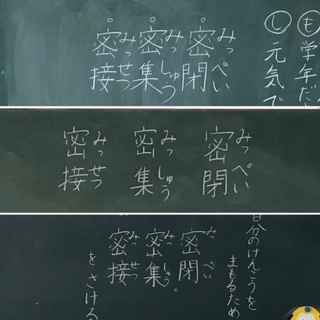 も学年だ
し元気で
密閉
みっぺい
密集
みっしゅう
密接
みっせつ
密閉
みっぺい
密集
みっしゅう
密接
みっせつ
自分のけんこうを
まもるため
密閉
みっぺい
密集
みっしゅう
密接
みっせつ
をさける